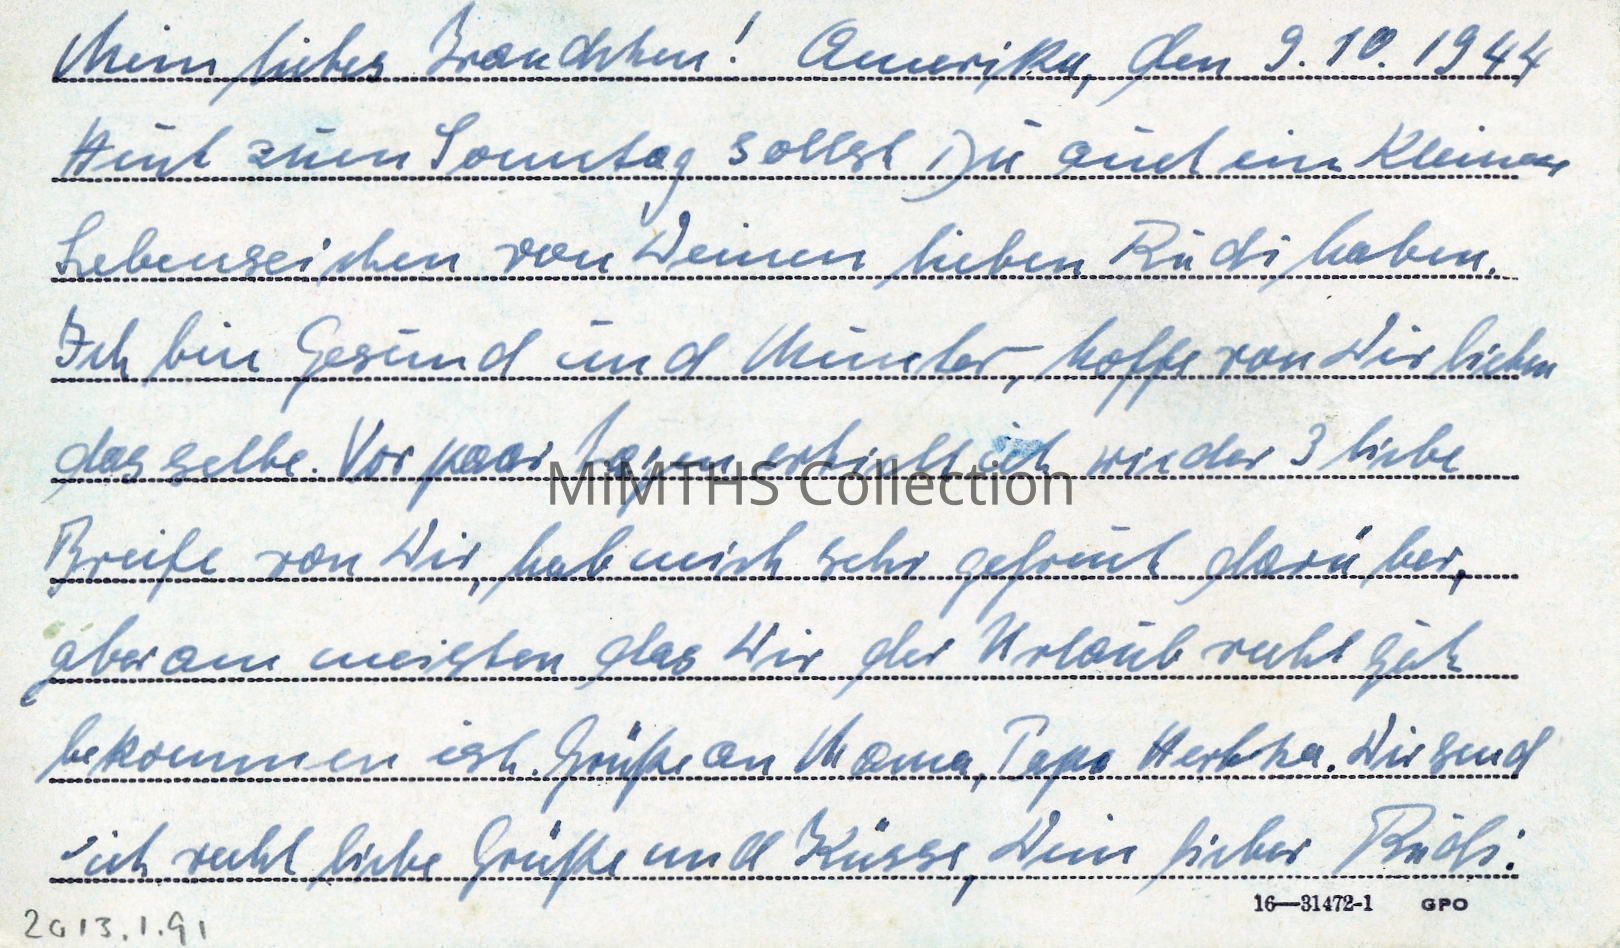 Mein liebes Frauchen! Amerika, den 9.10.1944
Heut zum Sonntag sollst Du auch ein kleines
Lebenseichen von Deinen lieben Rudi haben.
Ich bin Gesund und Munter, hoffe von Dir lieben
das selbe. Vor paar Tagen erhielt ich wieder 3 liebe
Breife von Dir, hab mich sehr gefreut darüber,
aber am meisten das Dir der Urlaub recht gut
bekommen ist. Grüße an Mama, Papa Dir send
ich recht liebe Grüße und Küsse, Dein lieber Rudi.
MiMTHS Collection
16—31472-1 GPO
2013.1.91